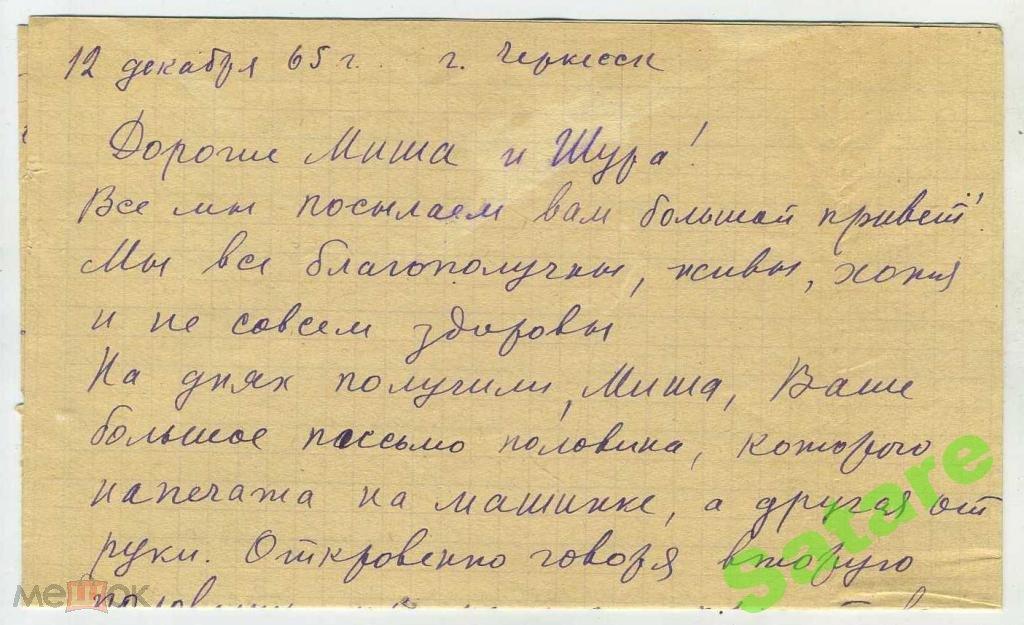 12 декабря 65 г. г. Черкесск
Дорогие Миша и Шура!
Все мы посылаем вам большой привет!
Мы все благополучны, живы, хотя
и не совсем здоровы
На днях получили, Миша, Ваше
большое письмо половина, которого
напечата на машинке, а другая от
руки. Откровенно говоря вторую
мешок
satare